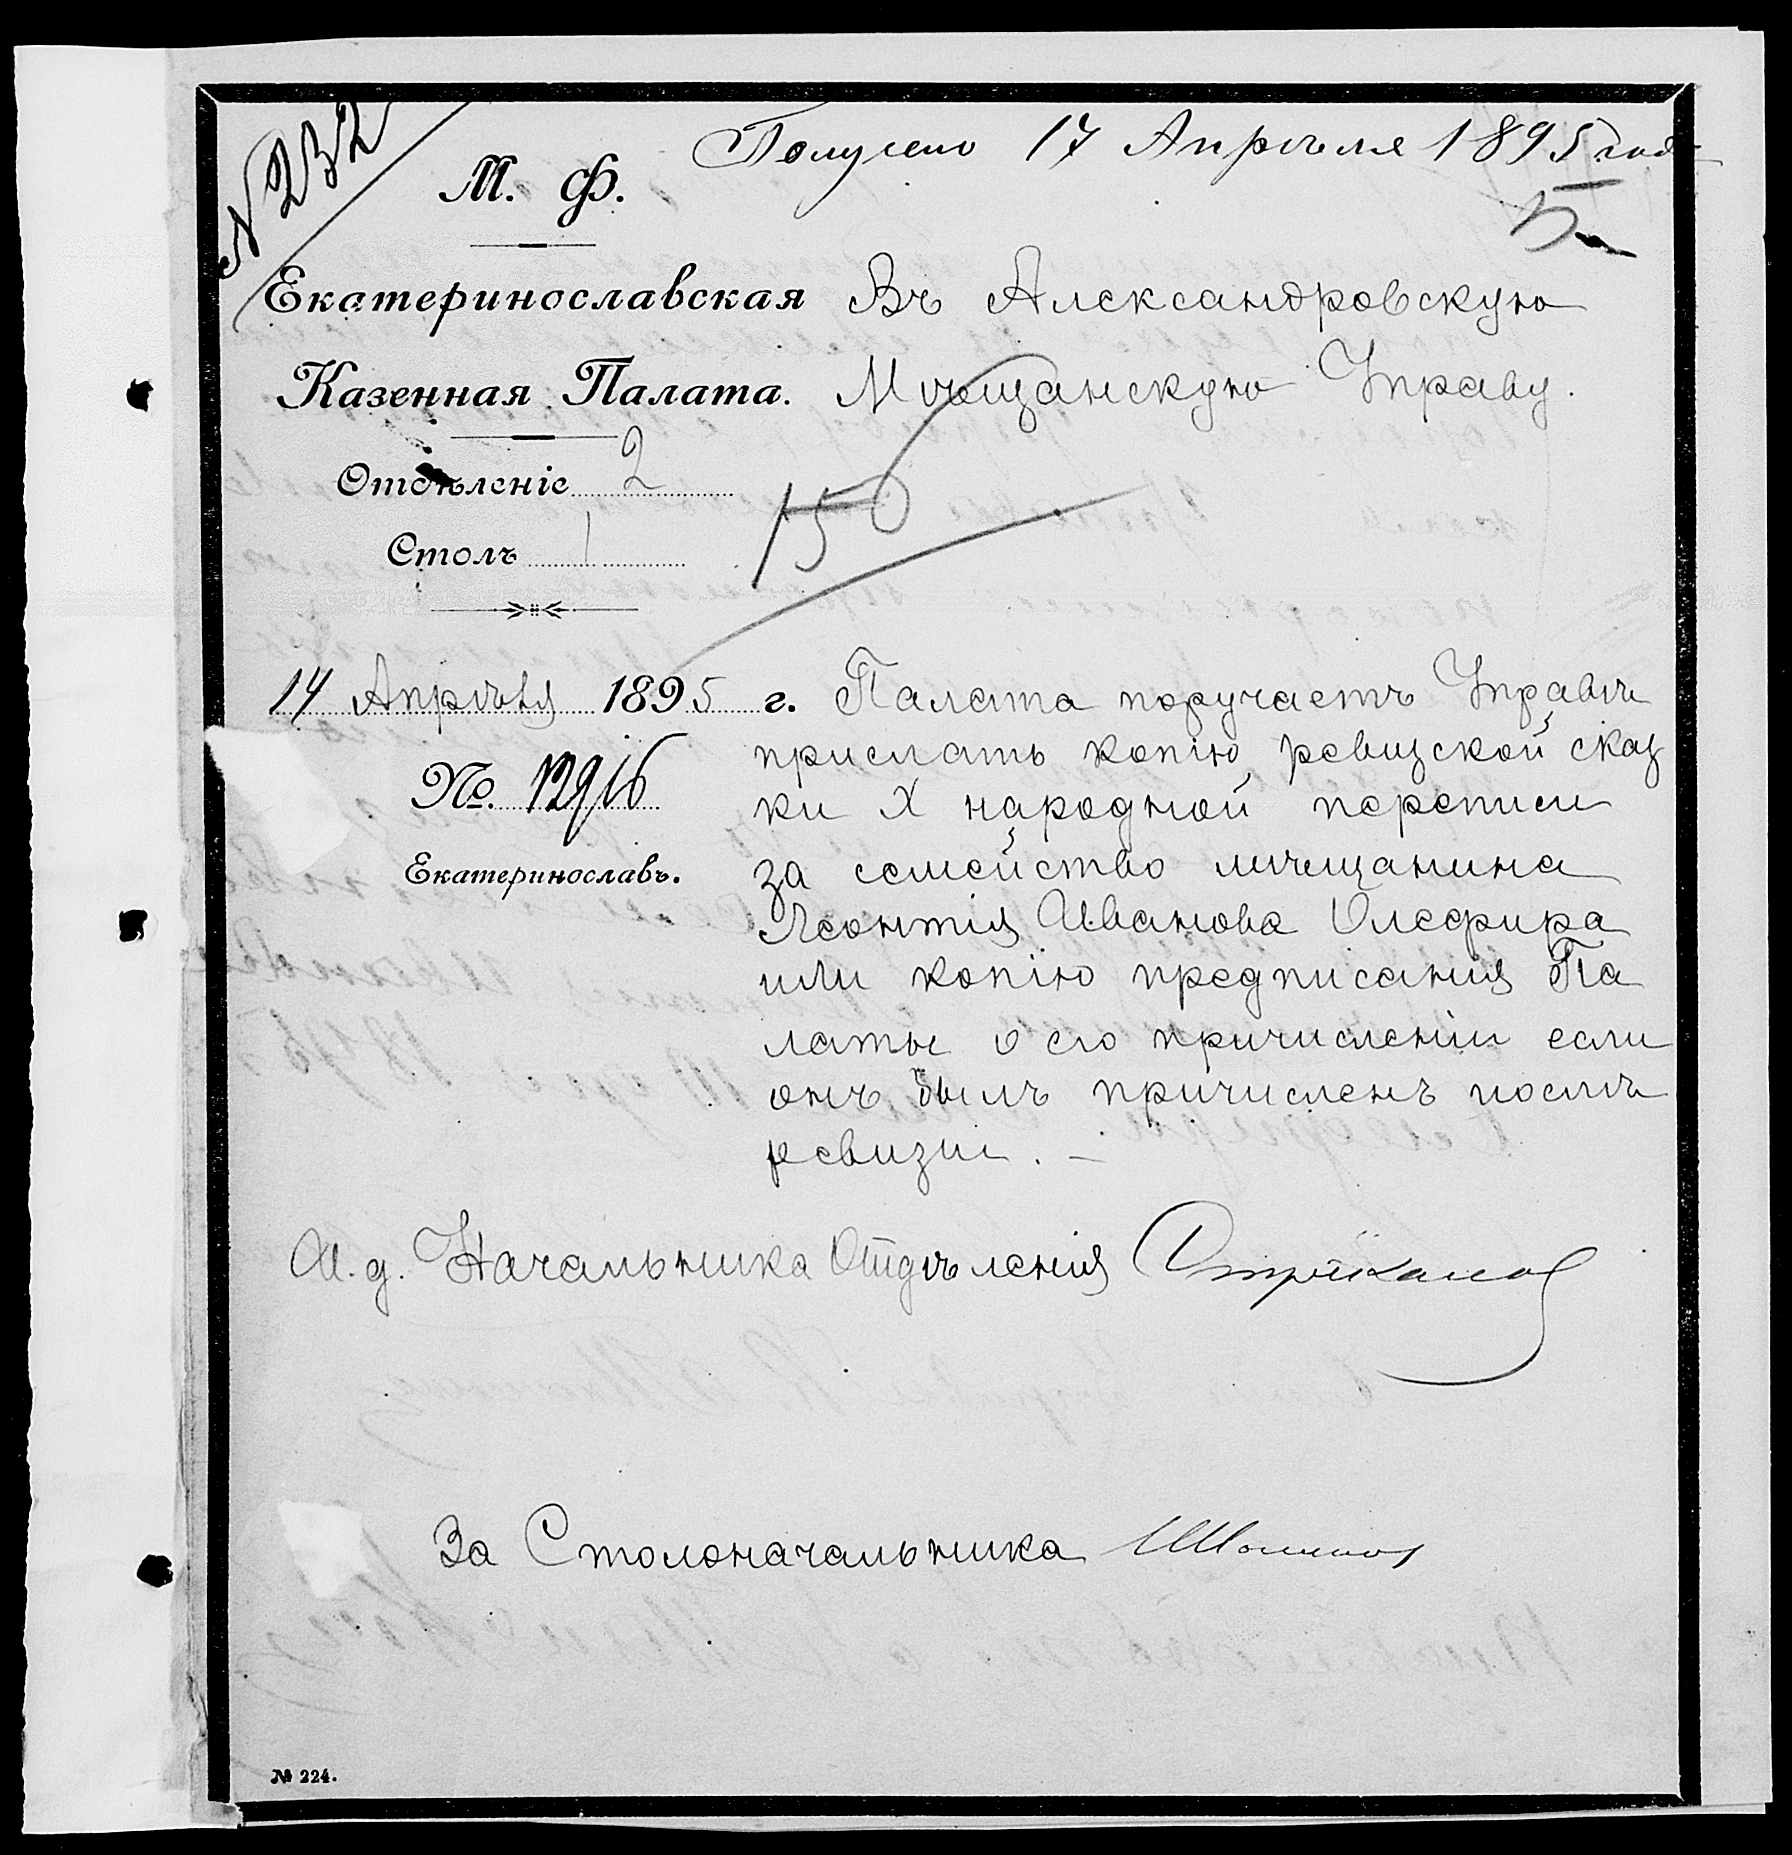 № 232
Получено 17 Апрѣля 1895 года
М. Ф.
5
Екатеринославская
Казенная Палата.
Отдѣленіе 2
Столъ 1
Въ Александровскую
Мѣщанскую Управу.
150
14 Апрѣля 1895 г.
№. 12916
Екатеринославъ.
Палата поручаетъ Управѣ
прислать копію ревизской сказ
ки X народной переписи
за семейство мѣщанина
Леонтія Иванова Олефира
или копію предписанія Па
латы о его причисленіи если
онъ былъ причисленъ послѣ
ревизіи. –
И. д. Начальника Отдѣленія
За Столоначальника
№ 224.